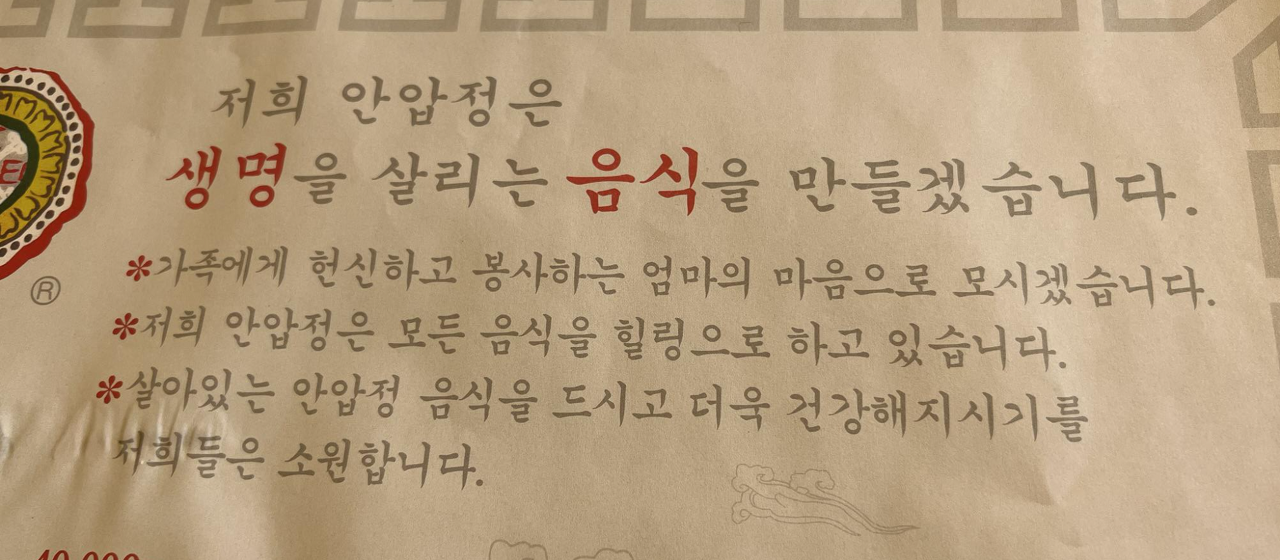 저희 안압정은
생명을 살리는 음식을 만들겠습니다.
*가족에게 헌신하고 봉사하는 엄마의 마음으로 모시겠습니다.
*저희 안압정은 모든 음식을 힐링으로 하고 있습니다.
*살아있는 안압정 음식을 드시고 더욱 건강해지시기를
저희들은 소원합니다.
®